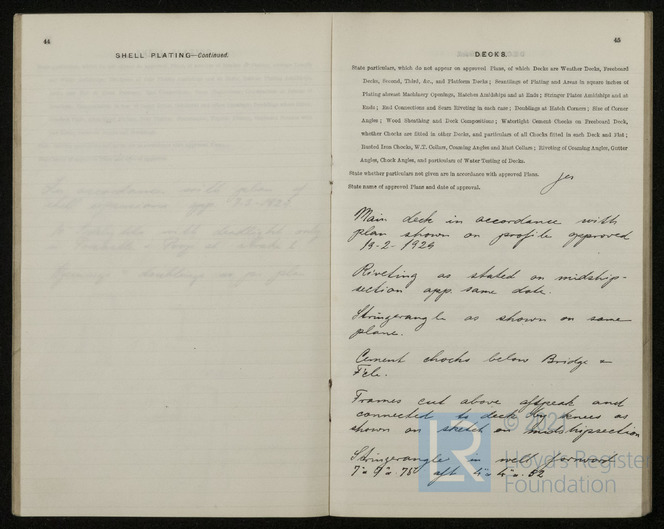 44
SHELL PLATING—Continued.
45
DECKS.
State particulars, which do not appear on approved Plans, of which Decks are Weather Decks, Freeboard
Decks, Second, Third, &c., and Platform Decks; Scantlings of Plating and Areas in square inches of
Plating abreast Machinery Openings, Hatches Amidships and at Ends; Stringer Plates Amidships and at
Ends; End Connections and Seam Riveting in each case; Doublings at Hatch Corners; Size of Corner
Angles; Wood Sheathing and Deck Compositions; Watertight Cement Chocks on Freeboard Deck,
whether Chocks are fitted in other Decks, and particulars of all Chocks fitted in each Deck and Flat;
Busted Iron Chocks, W.T. Collars, Coaming Angles and Mast Collars; Riveting of Coaming Angles, Gutter
Angles, Chock Angles, and particulars of Water Testing of Decks.
State whether particulars not given are in accordance with approved Plans. yes
State name of approved Plans and date of approval.
Main deck in accordance with
plan shown on profile approved
19-2-1924
Riveting as stated on midship-
section app. same date.
Stringerangle as shown on same
plane.
Cement chocks below Bridge &
F'cle.
Frames cut above aftpeak and
connected to deck by knees as
shown on sketch on midshipsection
Stringerangle in well forward
aft 4" x 4" x .52
© 2021
LR
Lloyd's Register
Foundation